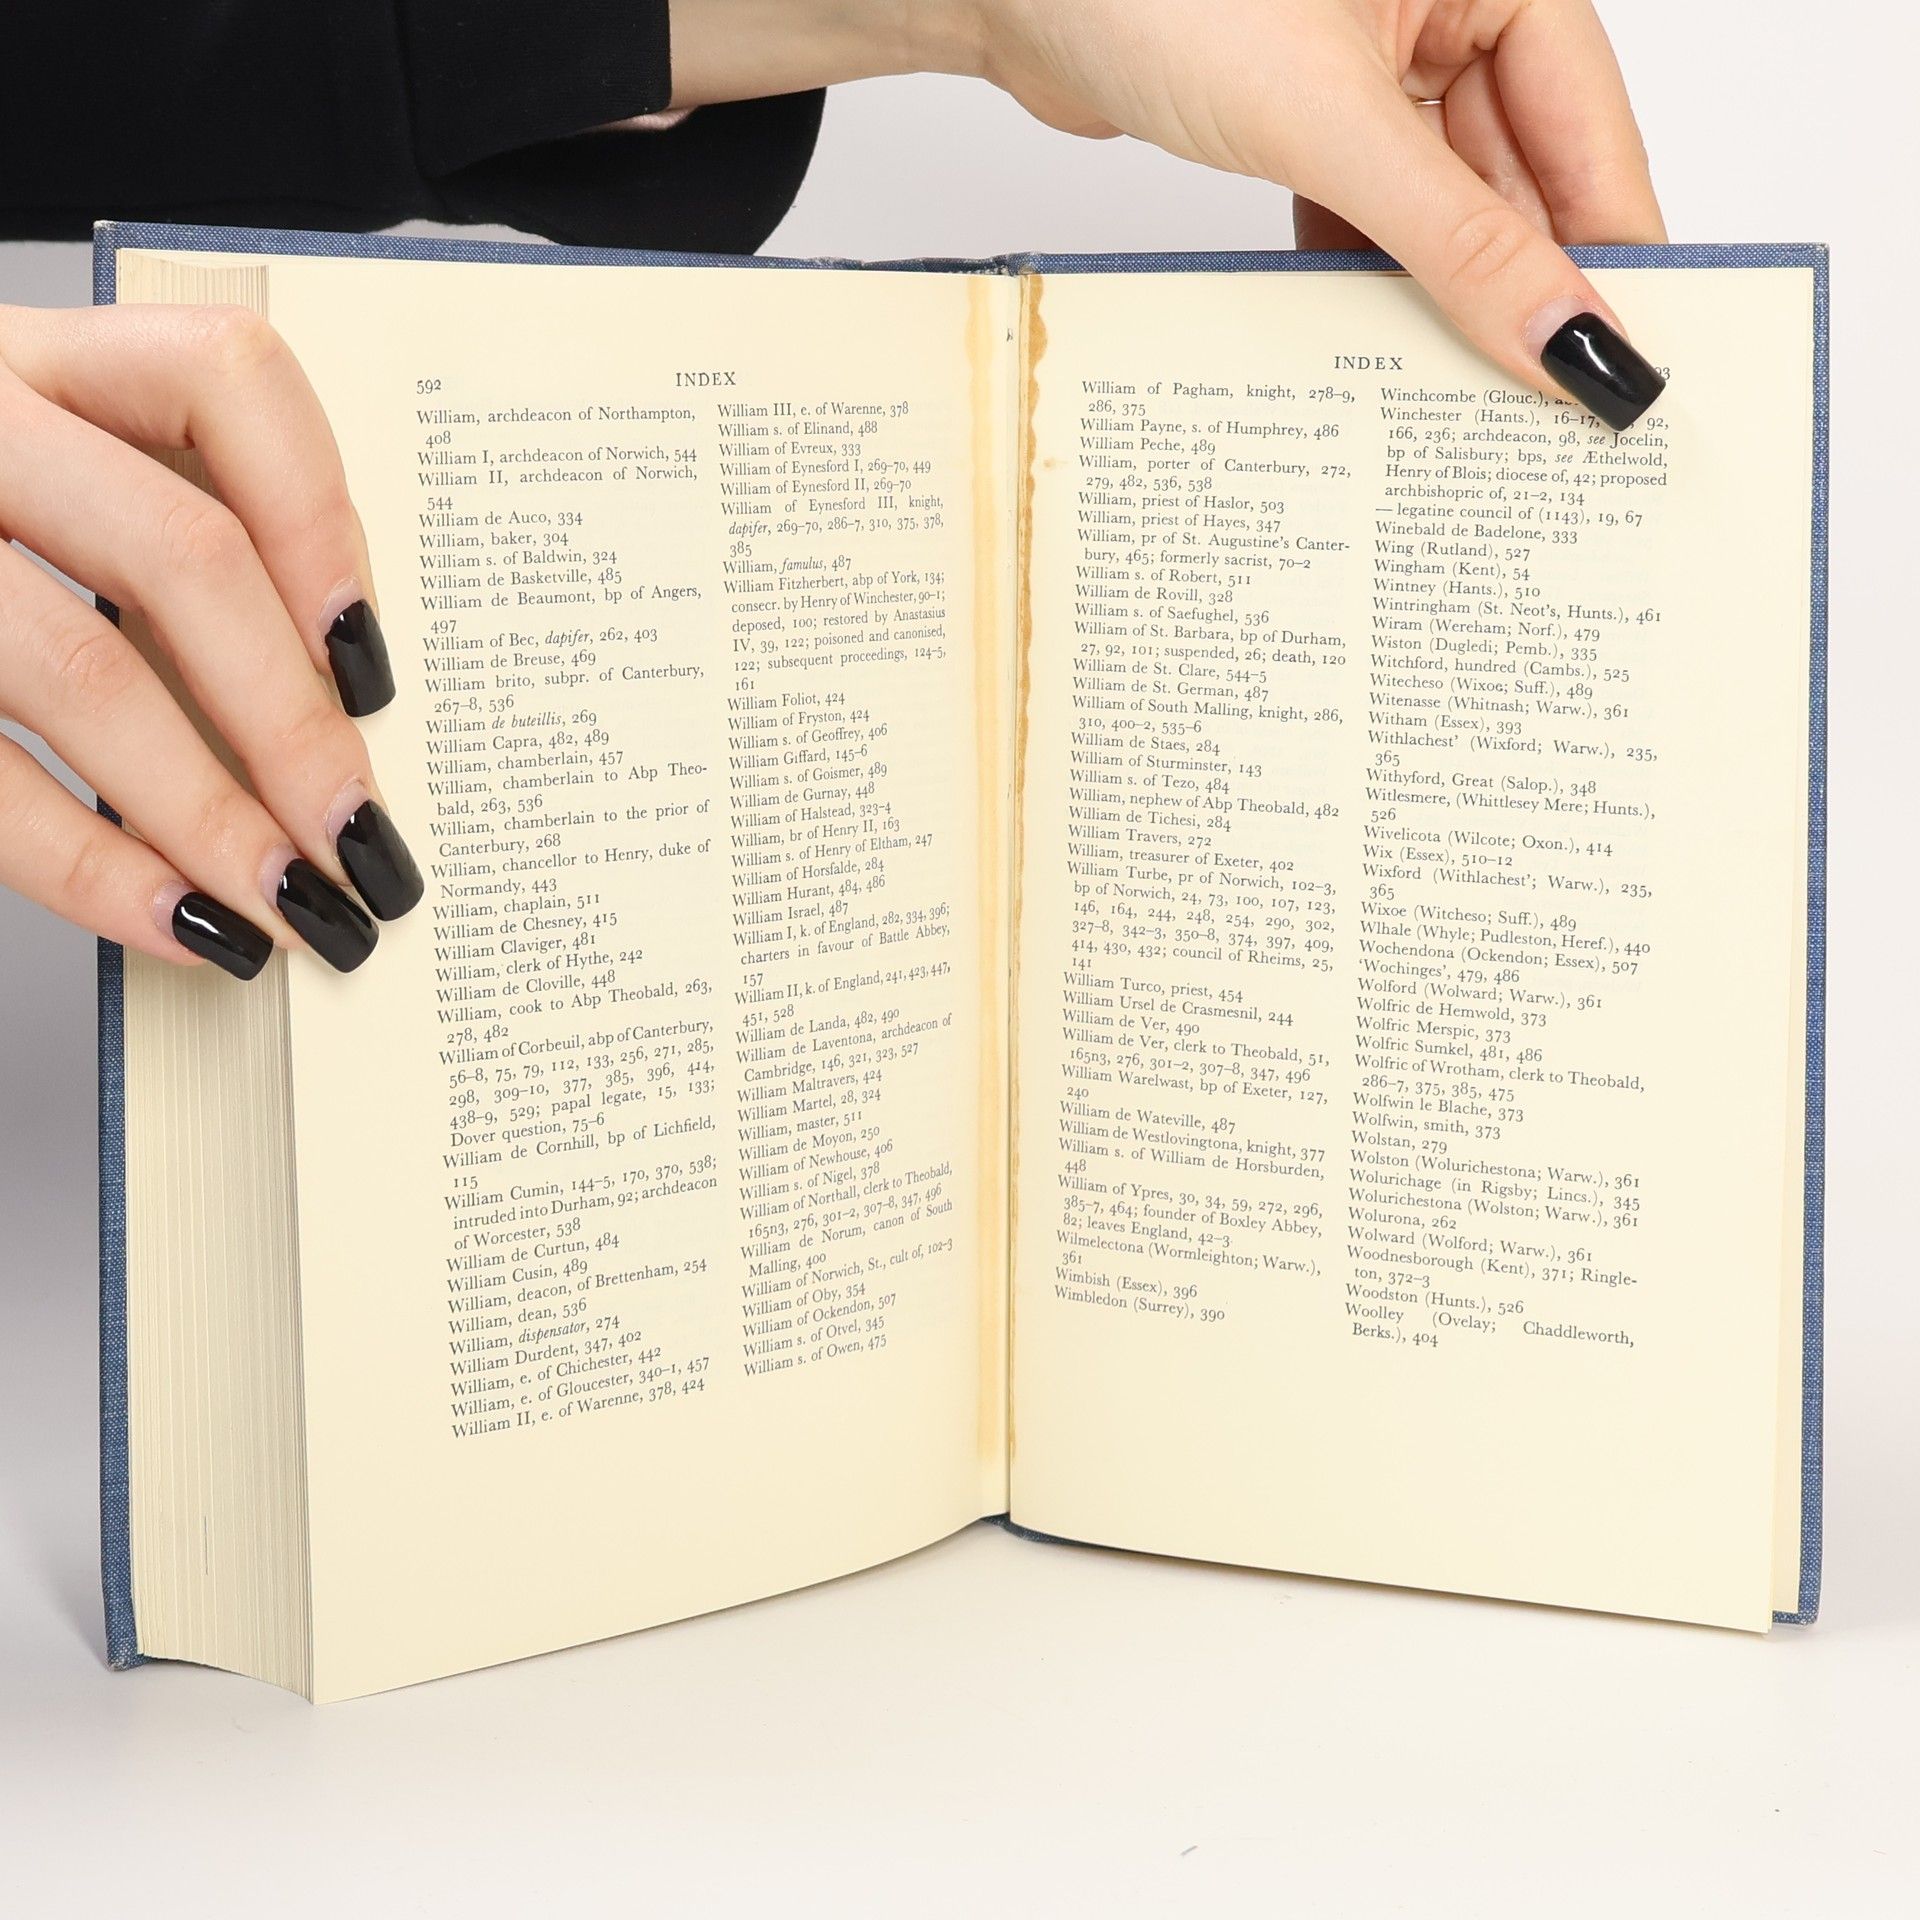 592
INDEX
William, archdeacon of Northampton,
408
William I, archdeacon of Norwich, 544
William II, archdeacon of Norwich,
544
William de Auco, 334
William, baker, 304
William s. of Baldwin, 324
William de Basketville, 485
William de Beaumont, bp of Angers,
497
William of Bec, dapifer, 262, 403
William de Breuse, 469
William brito, subpr. of Canterbury,
267–8, 536
William de buteillis, 269
William Capra, 482, 489
William, chamberlain, 457
William, chamberlain to Abp Theo-
bald, 263, 536
William, chamberlain to the prior of
Canterbury, 268
William, chancellor to Henry, duke of
Normandy, 443
William, chaplain, 511
William de Chesney, 415
William Claviger, 481
William, clerk of Hythe, 242
William de Cloville, 448
William, cook to Abp Theobald, 263,
278, 482
William of Corbeuil, abp of Canterbury,
56–8, 75, 79, 112, 133, 256, 271, 285,
298, 309–10, 377, 385, 396, 414,
438–9, 529; papal legate, 15, 133;
Dover question, 75–6
William de Cornhill, bp of Lichfield,
115
William Cumin, 144–5, 170, 370, 538;
intruded into Durham, 92; archdeacon
of Worcester, 538
William de Curtun, 484
William Cusin, 489
William, deacon, of Brettenham, 254
William, dean, 536
William, dispensator, 274
William Durdent, 347, 402
William, e. of Chichester, 442
William, e. of Gloucester, 340–1, 457
William II, e. of Warenne, 378, 424
William III, e. of Warenne, 378
William s. of Elinand, 488
William of Evreux, 333
William of Eynesford I, 269–70, 449
William of Eynesford II, 269–70
William of Eynesford III, knight,
dapifer, 269–70, 286–7, 310, 375, 378,
385
William, famulus, 487
William Fitzherbert, abp of York, 134;
consecr. by Henry of Winchester, 90–1;
deposed, 100; restored by Anastasius
IV, 39, 122; poisoned and canonised,
122; subsequent proceedings, 124–5,
161
William Foliot, 424
William of Fryston, 424
William s. of Geoffrey, 406
William Giffard, 145–6
William s. of Goismer, 489
William de Gurnay, 448
William of Halstead, 323–4
William, br of Henry II, 163
William s. of Henry of Eltham, 247
William of Horsfalde, 284
William Hurant, 484, 486
William Israel, 487
William I, k. of England, 282, 334, 396;
charters in favour of Battle Abbey,
157
William II, k. of England, 241, 423, 447,
451, 528
William de Landa, 482, 490
William de Laventona, archdeacon of
Cambridge, 146, 321, 323, 527
William Maltravers, 424
William Martel, 28, 324
William, master, 511
William de Moyon, 250
William of Newhouse, 406
William s. of Nigel, 378
William of Northall, clerk to Theobald,
165n3, 276, 301–2, 307–8, 347, 496
William de Norum, canon of South
Malling, 400
William of Norwich, St., cult of, 102–3
William of Oby, 354
William of Ockendon, 507
William s. of Otvel, 345
William s. of Owen, 475
INDEX
93
William of Pagham, knight, 278–9,
286, 375
William Payne, s. of Humphrey, 486
William Peche, 489
William, porter of Canterbury, 272,
279, 482, 536, 538
William, priest of Haslor, 503
William, priest of Hayes, 347
William, pr of St. Augustine's Canter-
bury, 465; formerly sacrist, 70–2
William s. of Robert, 511
William de Rovill, 328
William s. of Saefughel, 536
William of St. Barbara, bp of Durham,
27, 92, 101; suspended, 26; death, 120
William de St. Clare, 544–5
William de St. German, 487
William of South Malling, knight, 286,
310, 400–2, 535–6
William de Staes, 284
William of Sturminster, 143
William s. of Tezo, 484
William, nephew of Abp Theobald, 482
William de Tichesi, 284
William Travers, 272
William, treasurer of Exeter, 402
William Turbe, pr of Norwich, 102–3,
bp of Norwich, 24, 73, 100, 107, 123,
146, 164, 244, 248, 254, 290, 302,
327–8, 342–3, 350–8, 374, 397, 409,
414, 430, 432; council of Rheims, 25,
141
William Turco, priest, 454
William Ursel de Crasmesnil, 244
William de Ver, 490
William de Ver, clerk to Theobald, 51,
165n3, 276, 301–2, 307–8, 347, 496
William Warelwast, bp of Exeter, 127,
240
William de Wateville, 487
William de Westlovingtona, knight, 377
William s. of William de Horsburden,
448
William of Ypres, 30, 34, 59, 272, 296,
385–7, 464; founder of Boxley Abbey,
82; leaves England, 42–3
Wilmelectona (Wormleighton; Warw.),
361
Wimbish (Essex), 396
Wimbledon (Surrey), 390
Winchcombe (Glouc.),
Winchester (Hants.), 16–17, 92,
166, 236; archdeacon, 98, see Jocelin,
bp of Salisbury; bps, see Æthelwold,
Henry of Blois; diocese of, 42; proposed
archbishopric of, 21–2, 134
— legatine council of (1143), 19, 67
Winebald de Badelone, 333
Wing (Rutland), 527
Wingham (Kent), 54
Wintney (Hants.), 510
Wintringham (St. Neot's, Hunts.), 461
Wiram (Wereham; Norf.), 479
Wiston (Dugledi; Pemb.), 335
Witchford, hundred (Cambs.), 525
Witecheso (Wixoe; Suff.), 489
Witenasse (Whitnash; Warw.), 361
Witham (Essex), 393
Withlachest' (Wixford; Warw.), 235,
365
Withyford, Great (Salop.), 348
Witlesmere, (Whittlesey Mere; Hunts.),
526
Wivelicota (Wilcote; Oxon.), 414
Wix (Essex), 510–12
Wixford (Withlachest'; Warw.), 235,
365
Wixoe (Witcheso; Suff.), 489
Wlhale (Whyle; Pudleston, Heref.), 440
Wochendona (Ockendon; Essex), 507
'Wochinges', 479, 486
Wolford (Wolward; Warw.), 361
Wolfric de Hemwold, 373
Wolfric Merspic, 373
Wolfric Sumkel, 481, 486
Wolfric of Wrotham, clerk to Theobald,
286–7, 375, 385, 475
Wolfwin le Blache, 373
Wolfwin, smith, 373
Wolstan, 279
Wolston (Wolurichestona; Warw.), 361
Wolurichage (in Rigsby; Lincs.), 345
Wolurichestona (Wolston; Warw.), 361
Wolurona, 262
Wolward (Wolford; Warw.), 361
Woodnesborough (Kent), 371; Ringle-
ton, 372–3
Woodston (Hunts.), 526
Woolley (Ovelay; Chaddleworth,
Berks.), 404